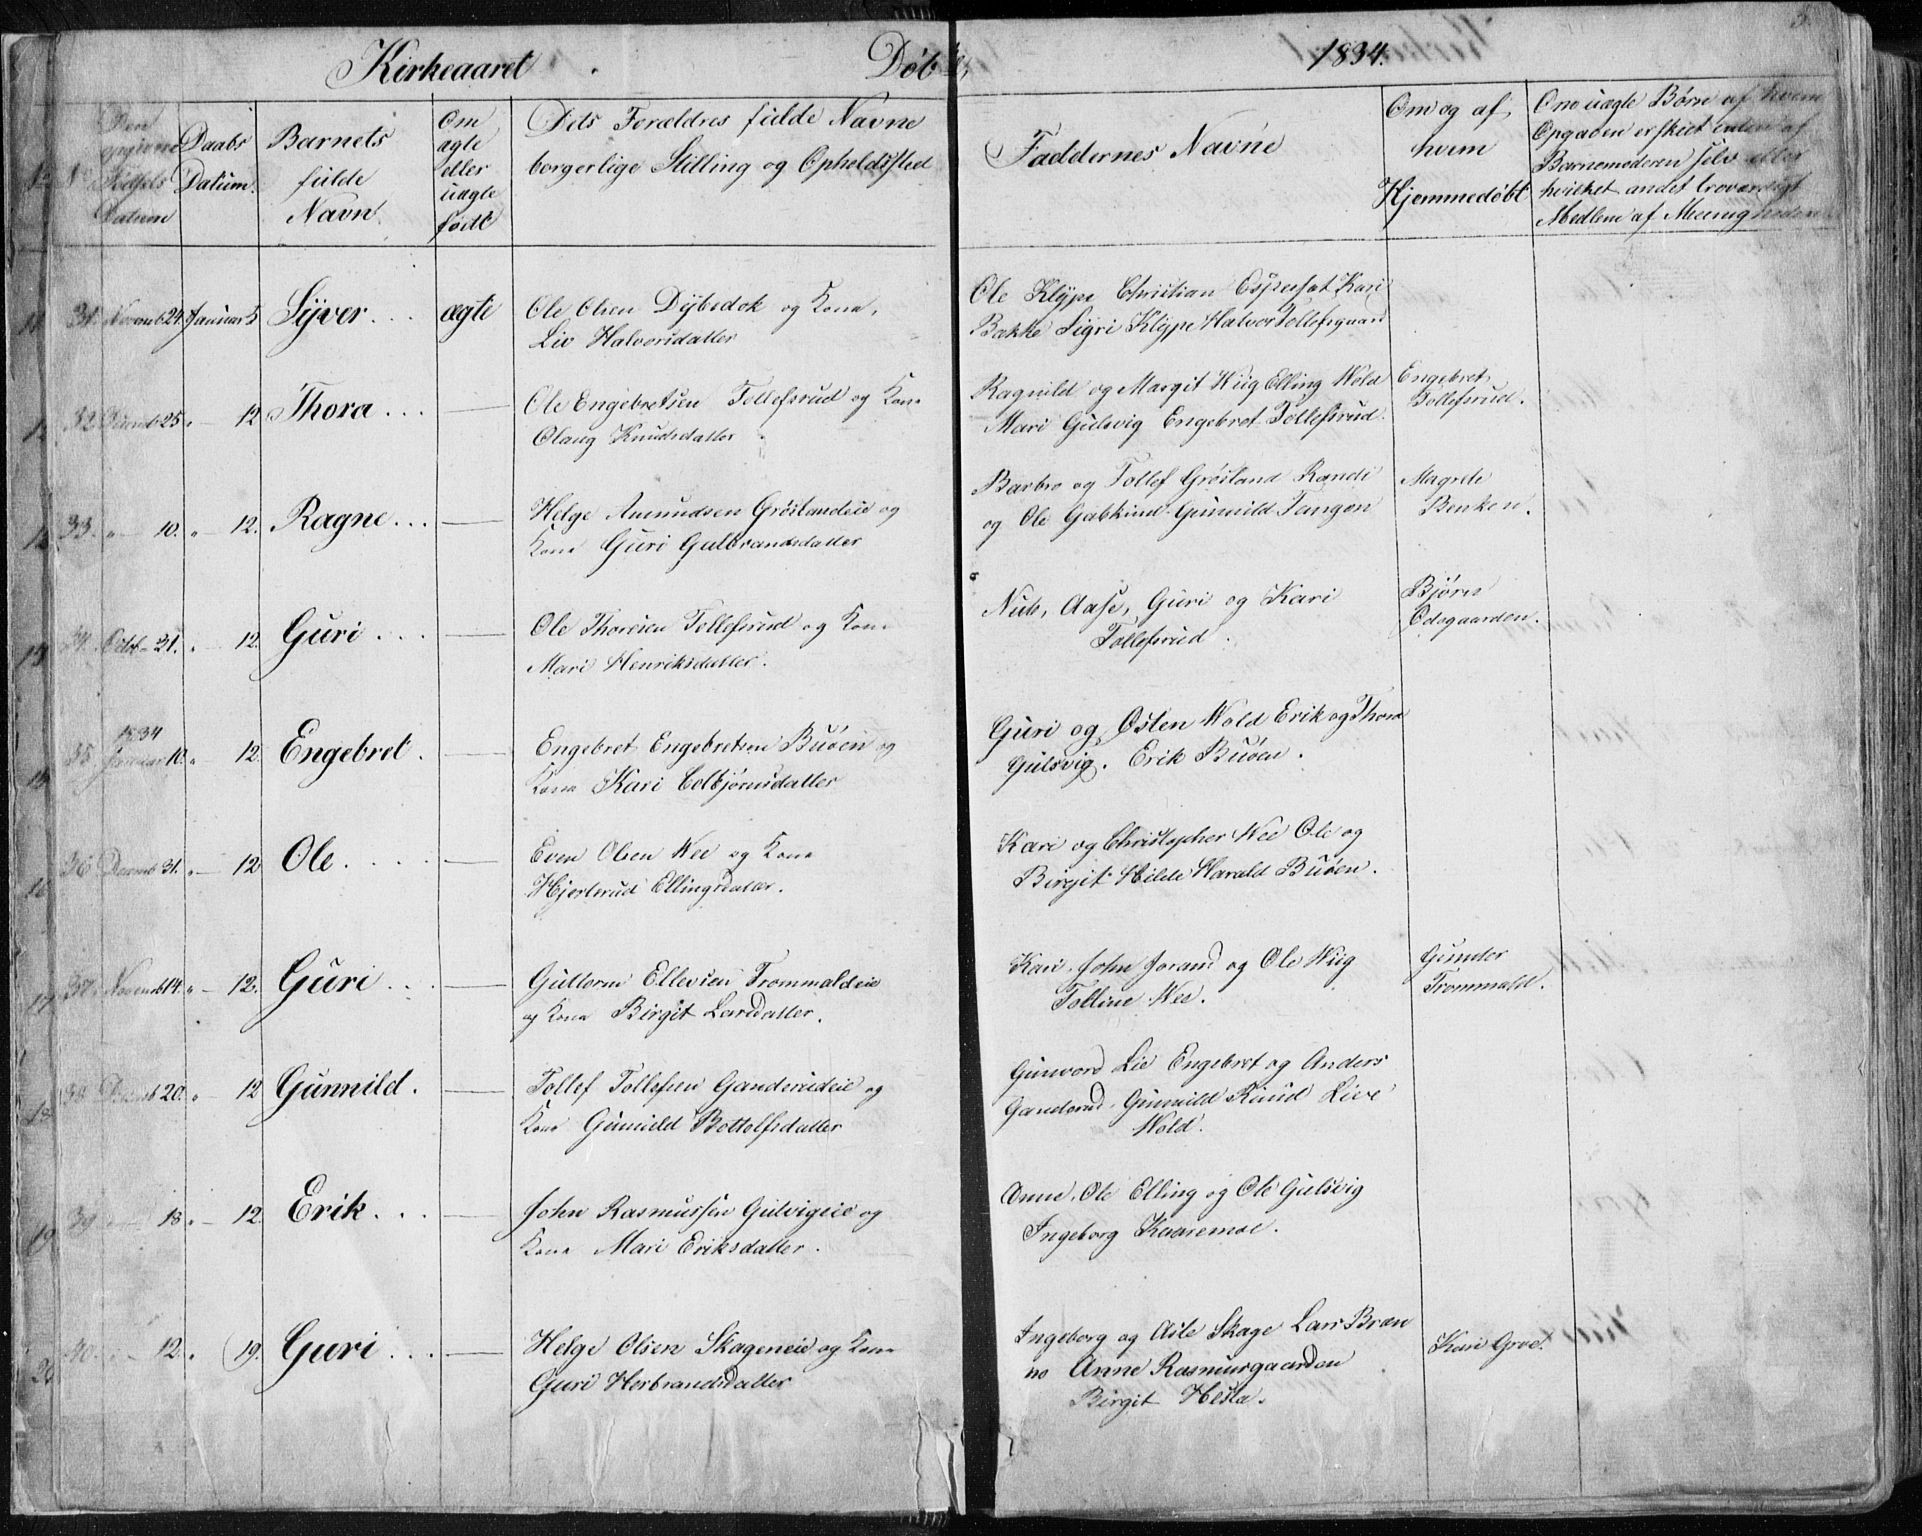 Kirkeaaret Døbte, 1834.
Den opgivne Fødsels Datum | Daabs Datum. | Barnets fulde Navn | Om ægte eller uægte født | Dets Forældres fulde Navne borgerlige Stilling og Opholdssted | Faddernes Navne | Om og af hvem Hjemmedøbt | Om uægte Børn af hvem Opgaven er skeet enten af Barnemoderen selv eller hvilket andet troværdigt Medlem af Meenigheden
31. Novemb 24. Januar 5 Syver... ægte Ole Olsen Dybedok og Kone,
Liv Halvorsdatter
Ole Klype Christian Kari
Bakke Sigri Klype Halvor Tollefsgaard
32 Decemb 25 " — 12 Thora... — Ole Engebretsen Tollefsrud og Kone
Olaug Knudsdatter
Ragnild og Margit Wiig Elling Wold
Mari Gulsvig Engebret Tollefsrud.
Engebret
Tollefsrud.
33. " — 10. " — 12. Ragne... — Helge Amundsen Grøslandeie og
Kone Guri Gulbrandsdatter
Barbro og Tollef Grøsland Randi
og Ole Gunnild Tangen
Magrete
Benken.
34. Octob — 31. " — 12. Guri... — Ole Thoresen Tollefsrud og Kone
Mari Henriksdatter.
Nub, Aase, Guri og Kari
Tollefsrud.
Bjørn
Odsgaarden.
35 1834
Januar 10. " 12. Engebret. — Engebret Engebretsen Buøen og
Kone Kari Colbjørnsdatter
Guri og Østen Wold Erik og Thora
Gulsvig. Erik Buøen.
36 Decemb 31. " — 12 Ole.... — Even Olsen Wee og Kone
Hjertrud Ellingsdatter.
Kari og Christopher Wee Ole og
Birgit Hilde Harald Buøen.
37. Novemb 14. " — 12. Guri... — Guttorm Ellevsen Trommaldeie
og Kone Birgit Larsdatter.
Kari John Jorand og Ole Wiig
Tolline Wee.
Gunder
Trommald.
38 Decemb 20. " — 12 Gunnild. — Tollef Tollefsen Ganderudeie og
Kone Gunnild Bottolfsdatter
Gunvord Lie Engebret og Anders
Ganderud Gunnild Ruud Live
Wold.
39 — 18. " — 12. Erik... — John Rasmussen Gulsvigeie og
Kone Mari Eriksdatter.
Anne Ole Elling og Ole Gulsvig
Ingeborg Kaaremoe.
40. — 12. " (19. Guri... — Helge Olsen Skageneie og Kone
Guri Herbrandsdatter
Ingeborg og Asle Skage Lars Bræn
no Anne Rasmusgaarden
Birgit Hesla.
Kari Groe.